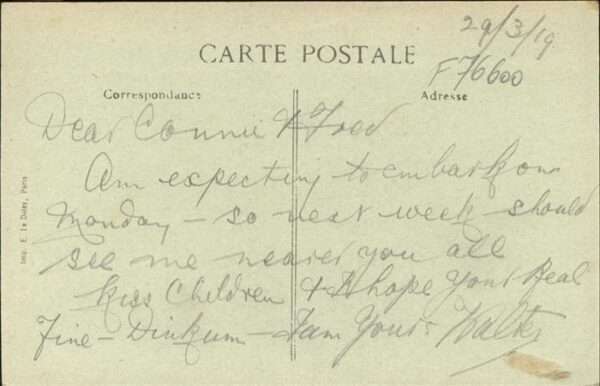 29/3/19
CARTE POSTALE
F76600
Correspondance
Adresse
Dear Connie & Fred
Am expecting to embark on
Monday - so next week should
see me nearer you all
Kiss Children & I hope Your Real
Fine - Dinkum - I am Yours Walter
Imp. E. Le Deley, Paris